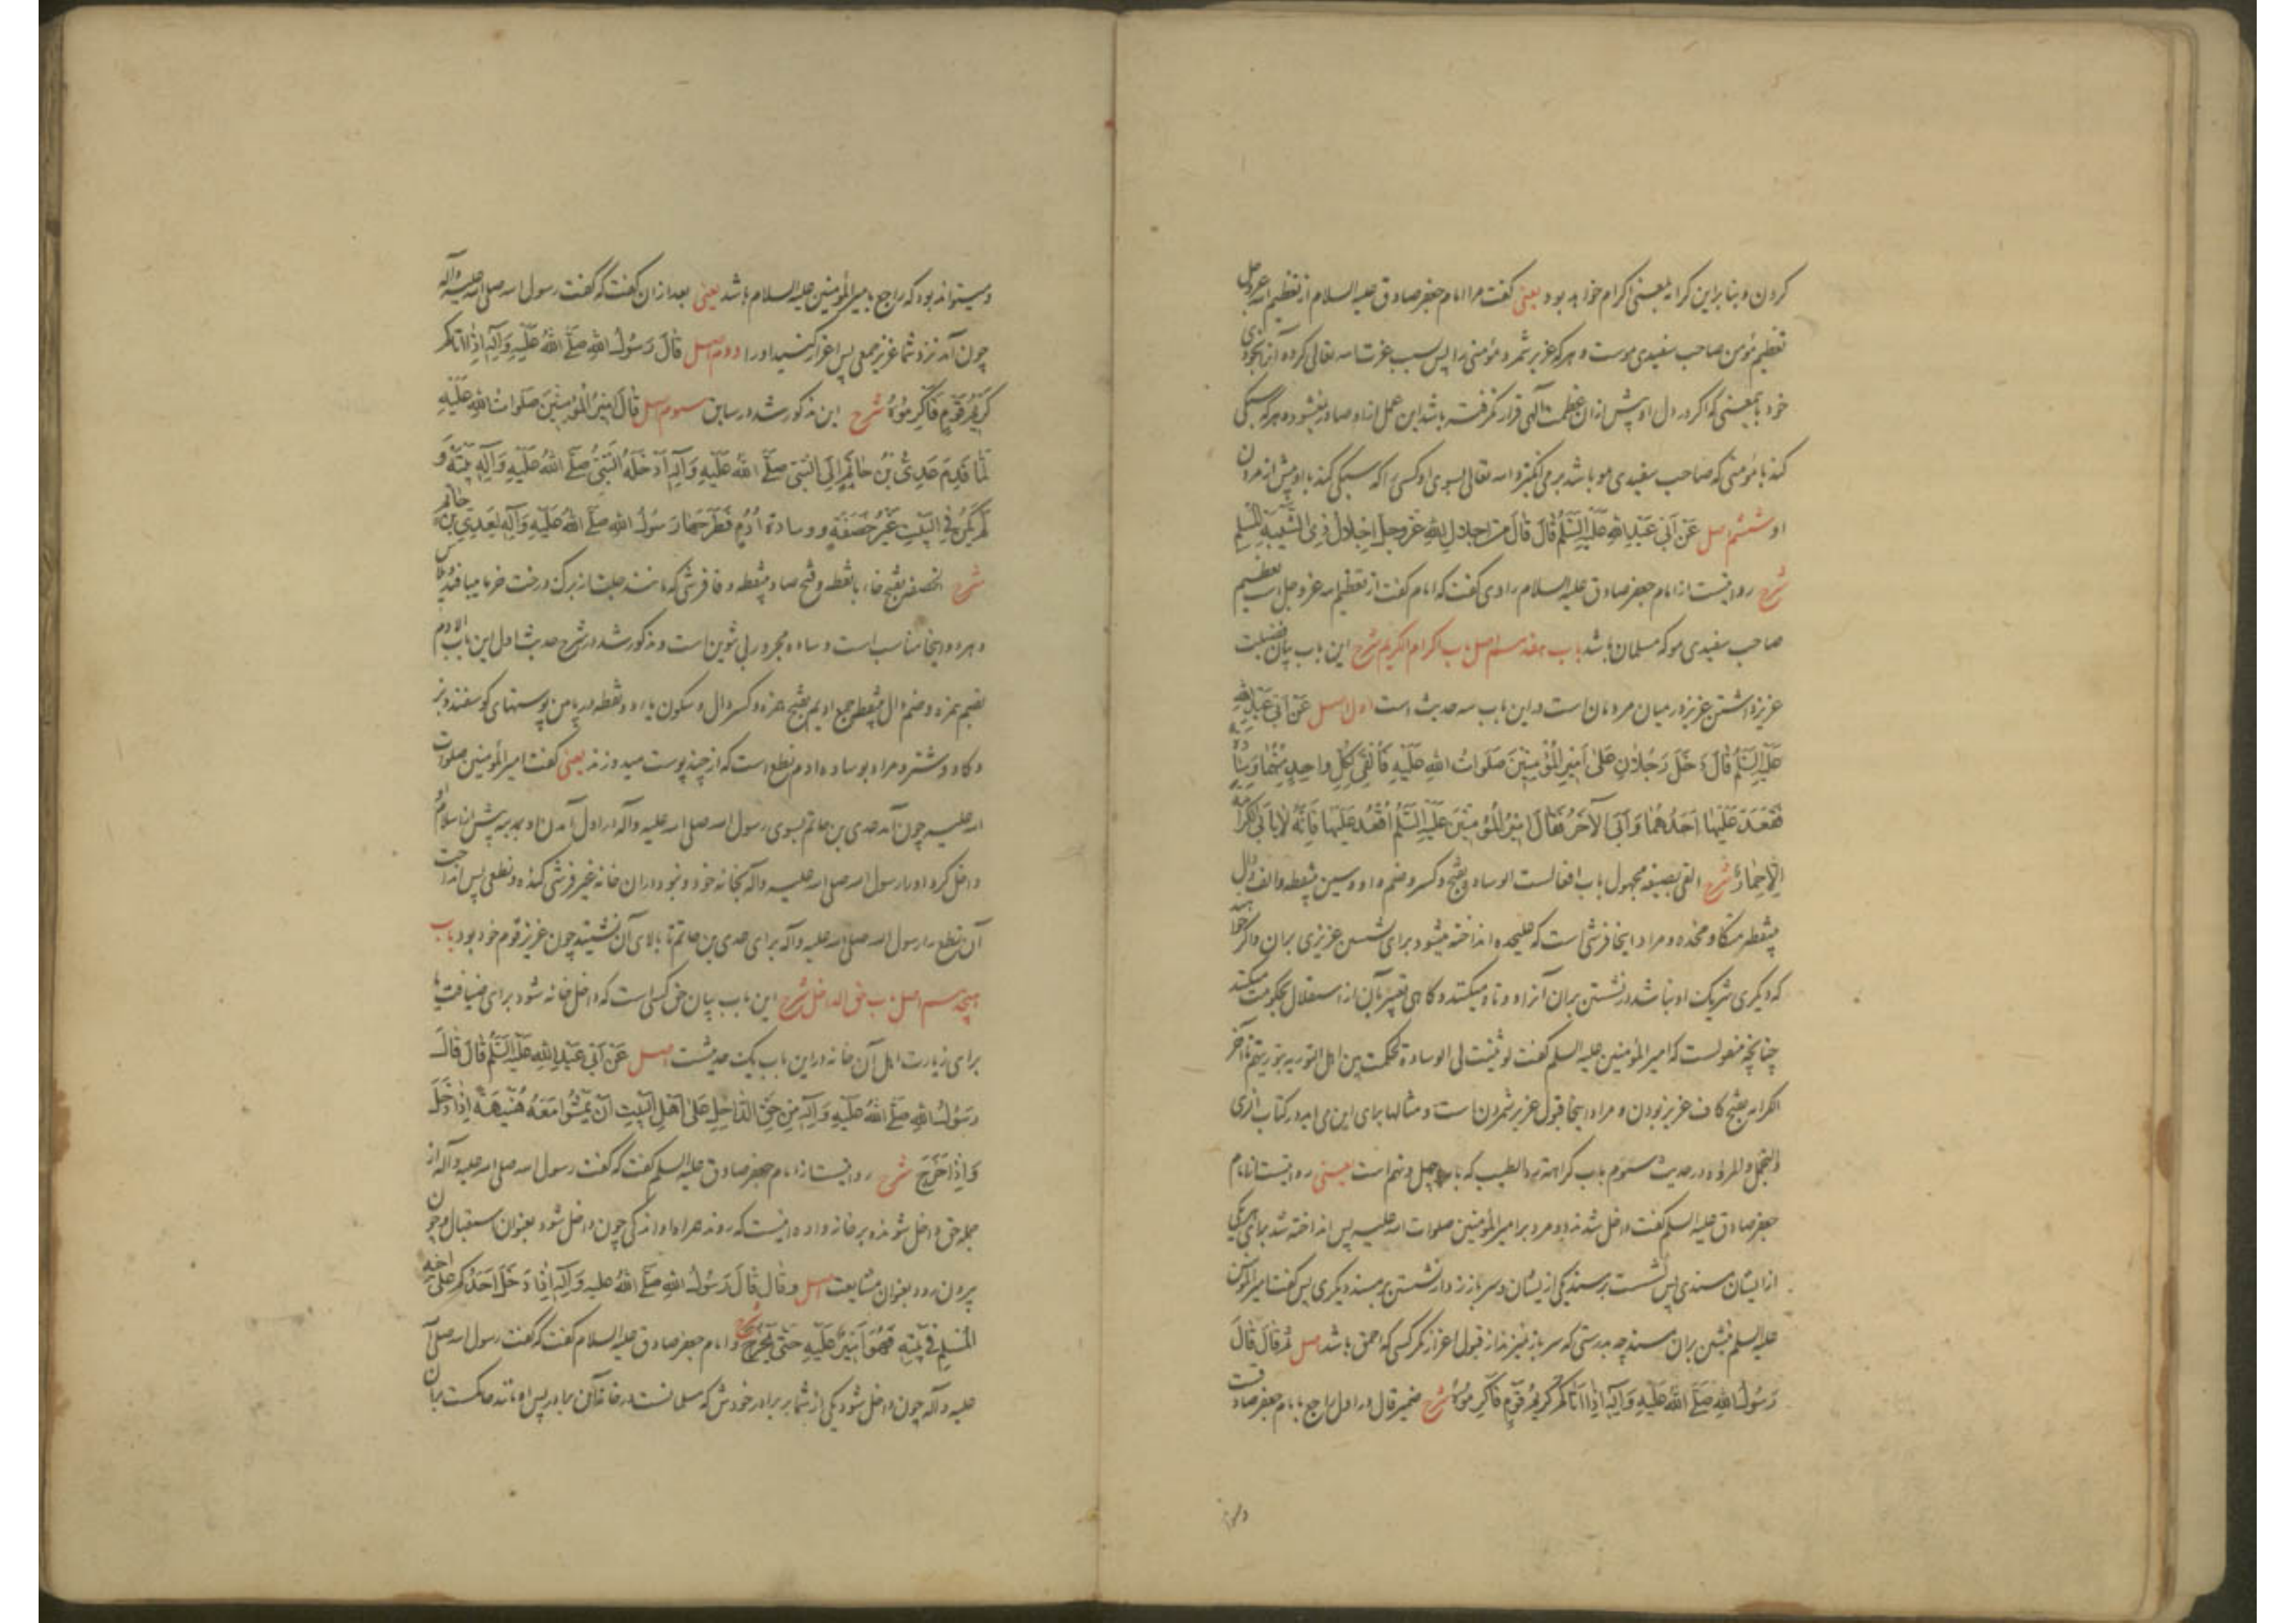 کردن و بنا براین کرامه بمعنی اکرام خواهد بود یعنی گفت مرا امام جعفر صادق علیه السلام از تعظیم الله عزوجل
تعظیم مؤمن صاحب سفیدی موست و هر که عزیز شمرد مؤمنی را پس بسبب عزت الله تعالی کرده آنرا بخودی
خود باینمعنی که اگر در دل او پیش ازان عظمت الهی قرار نگرفته باشد این عمل ازو صادر نمیشود و هر که سبکی
کند با مؤمنی که صاحب سفیدی مو باشد برمی انگیزد الله تعالی بسوی او کسی را که سبکی کند با او پیش از مردن
او ششم اصل عَنْ اَبی عَبْدِ اللهِ عَلَیْهِ السَّلَمُ قالَ قالَ مِن اِجلالِ اللهِ عَزَّ وجلَّ اِجْلالُ ذِی الشَّیْبَةِ المُسْلِمِ
شرح روایتست از امام جعفر صادق علیه السلام راوی گفت که امام گفت از تعظیم الله عزوجل است تعظیم
صاحب سفیدی مو که مسلمان باشد باب هفدهم اصل باب اکرام الکریم شرح این باب بیان فضیلت
عزیز داشتن عزیز در میان مردمان است درین باب سه حدیث است اول اصل عَنْ اَبی عَبْدِ اللهِ
عَلَیْهِ السَّلَمُ قالَ دَخَلَ رَجُلانِ عَلی اَمیرِ المُؤْمِنینَ صَلَواتُ اللهِ عَلَیْهِ فَاَلْقی لِکُلِّ واحِدٍ مِنْهُما وِسادَةً
فَقَعَدَ عَلَیْها اَحَدُهُما وَاَبَی الآخَرُ فَقالَ اَمیرُ المُؤمِنینَ عَلَیْهِ السَّلَمُ اُقْعُدْ عَلَیْها فَاِنَّهُ لا یَأبَی الکَرامَةَ
اِلّا حِمارٌ شرح القی بصیغه مجهول باب افعالست الوساده بفتح و کسر و ضم واو و سین بینقطه و الف و دال
بینقطه متکا و مخده و مراد اینجا فرشی است که علیحده انداخته میشود برای نشستن عزیزی بران و اگر خواهند
که دیگری شریک او نباشد در نشستن بران آنرا دو تاه میکنند و گاهی تعبیر بآن از استقلال بحکومت میکنند
چنانچه منقولست که امیر المؤمنین علیه السلم گفت لو ثنیت لی الوسادة لحکمت بین اهل التوریة بتوریتهم تا آخر
الکرامه بفتح کاف عزیز بودن و مراد اینجا قبول عزیز شمردن است و مثالها برای این می آید در کتاب الزی
والتجمل والمروة در حدیث سیوم باب کراهة رد الطیب که باب چهل و نهم است یعنی روایتست از امام
جعفر صادق علیه السلم گفت داخل شدند دو مرد بر امیر المؤمنین صلوات الله علیه پس انداخته شد برای هر یکی
از ایشان مسندی پس نشست بر مسند یکی ازیشان و سر باز زد از نشستن بر مسند دیگری پس گفت امیر المؤمنین
علیه السلم بنشین بران مسند چه بدرستی که سر باز نمیزند از قبول اعزاز مگر کسی که احمق باشد اصل ثُمَّ قالَ قالَ
رَسُولُ اللهِ صَلَّی اللهُ عَلَیْهِ وَآلِهِ اِذا اَتاکُمْ کَریمُ قَوْمٍ فَاَکْرِمُوهُ شرح ضمیر قال در اول راجع بامام جعفر صادقست
ومیتواند
ومیتواند بود که راجع بامیر المؤمنین علیه السلام باشد یعنی بعد ازان گفت که گفت رسول الله صلی الله علیه وآله
چون آمد نزد شما عزیز جمعی پس اعزاز کنید او را دوم اصل قالَ رَسُولُ اللهِ صَلَّی اللهُ عَلَیْهِ وَآلِهِ اِذا اَتاکُمْ
کَریمُ قَوْمٍ فَاَکْرِمُوهُ شرح این مذکور شد در سابق سیوم اصل قالَ اَمیرُ المُؤْمِنینَ صَلَواتُ اللهِ عَلَیْهِ
لَمّا قَدِمَ عَدِیُّ بْنُ حاتِمٍ اِلَی النَّبِیِّ صَلَّی اللهُ عَلَیْهِ وَآلِهِ اَدْخَلَهُ النَّبِیُّ صَلَّی اللهُ عَلَیْهِ وَآلِهِ بَیْتَهُ وَ
لَمْ یَکُنْ فِی البَیْتِ غَیْرُ خَصَفَةٍ وَ وِسادَةِ اُدُمٍ فَطَرَحَها رَسُولُ اللهِ صَلَّی اللهُ عَلَیْهِ وَآلِهِ لِعَدِیِّ بْنِ حاتِمٍ
شرح الخصفه بفتح خاء با نقطه و فتح صاد بینقطه و فا فرشی که مانند جلت از برگ درخت خرما میبافند و پلاس
و هر دو اینجا مناسب است وساده مجرور بی تنوین است و مذکور شد در شرح حدیث اول این باب الادم
بضم همزه و ضم دال بینقطه جمع ادیم بفتح همزه و کسر دال و سکون یاء دو نقطه در پایین پوستهای گوسفند و بز
و گاو و شتر و مراد بوساده ادم نطع است که از چند پوست میدوزند یعنی گفت امیر المؤمنین صلوات
الله علیه چون آمد عدی بن حاتم بسوی رسول الله صلی الله علیه وآله در اول آمدن او بمدینه پیش از اسلام او
داخل کرد او را رسول الله صلی الله علیه وآله بخانه خود و نبود در ان خانه غیر فرشی کنده و نطعی پس انداخت
آن نطع را رسول الله صلی الله علیه وآله برای عدی بن حاتم تا بالای آن نشیند چون عزیز قوم خود بود باب
هیجدهم اصل باب حق الداخل شرح این باب بیان حق کسی است که داخل خانه شود برای ضیافت یا
برای زیارت اهل آن خانه دراین باب یک حدیثست اصل عَنْ اَبی عَبْدِ اللهِ عَلَیْهِ السَّلَمُ قالَ قالَ
رَسُولُ اللهِ صَلَّی اللهُ عَلَیْهِ وَآلِهِ مِنْ حَقِّ الدّاخِلِ عَلی اَهْلِ البَیْتِ اَنْ یَمْشُوا مَعَهُ هُنَیْهَةً اِذا دَخَلَ
وَ اِذا خَرَجَ شرح روایتست از امام جعفر صادق علیه السلم گفت که گفت رسول الله صلی الله علیه وآله از
جمله حق داخل شونده بر خانواده اینست که روند همراه او اندکی چون داخل شود بعنوان استقبال و چون
بیرون رود بعنوان مشایعت اصل وقال قالَ رَسُولُ اللهِ صَلَّی اللهُ علیه وَآلِهِ اِذا دَخَلَ اَحَدُکُمْ عَلی اخیه
المُسْلِمِ فی بَیْتِهِ فَهُوَ اَمیرٌ عَلَیْهِ حَتّی یَخْرُجَ شرح و امام جعفر صادق علیه السلام گفت که گفت رسول الله صلی الله
علیه وآله چون داخل شود یکی از شما بر برادر خودش که مسلمانست در خانه آن برادر پس او مانند حاکمست بر آن